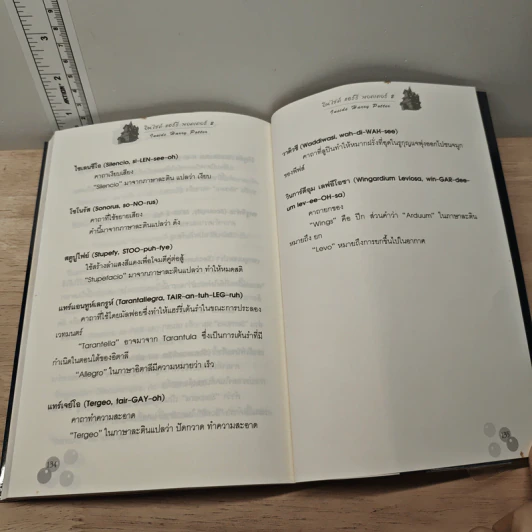 อินไซด์ แฮร์รี่ พอตเตอร์ 5
Inside Harry Potter
ไซเลนซิโอ (Silencio, si-LEN-see-oh)
คาถาเงียบเสียง
"Silencio" มาจากภาษาละติน แปลว่า เงียบ
โซโนรัส (Sonorus, so-NO-rus)
คาถาที่ใช้ขยายเสียง
คำนี้มาจากภาษาละตินแปลว่า ดัง
สตูปีไฟย์ (Stupefy, STOO-puh-fye)
ใช้สร้างลำแสงสีแดงเพื่อโจมตีคู่ต่อสู้
"Stupefacio" มาจากภาษาละตินแปลว่า ทำให้หมดสติ
แทร์แอนทูห์เลกรูห์ (Tarantallegra, TAIR-an-tuh-LEG-ruh)
คาถาที่ใช้โดยมัลฟอยซึ่งทำให้แฮร์รี่เต้นรำในขณะการประลอง
เวทมนตร์
"Tarantella" อาจมาจาก Tarantula ซึ่งเป็นการเต้นรำที่มี
กำเนิดในตอนใต้ของอิตาลี
"Allegro" ในภาษาอิตาลีมีความหมายว่า เร็ว
แทร์เจย์โอ (Tergeo, tair-GAY-oh)
คาถาทำความสะอาด
"Tergeo" ในภาษาละตินแปลว่า ปัดกวาด ทำความสะอาด
134
อินไซด์ แฮร์รี่ พอตเตอร์ 5
Inside Harry Potter
วาดิวาซี (Waddiwasi, wah-di-WAH-see)
คาถาที่ลูปินทำให้หมากฝรั่งที่อุดในรูกุญแจพุ่งออกไปชนจมูก
ของพีฟส์
วินการ์ดีอุม เลฟอีโอซา (Wingardium Leviosa, win-GAR-dee-
um lev-ee-OH-sa)
คาถายกของ
"Wings" คือ ปีก ส่วนคำว่า "Arduum" ในภาษาละติน
หมายถึง ยก
"Levo" หมายถึงการยกขึ้นไปในอากาศ